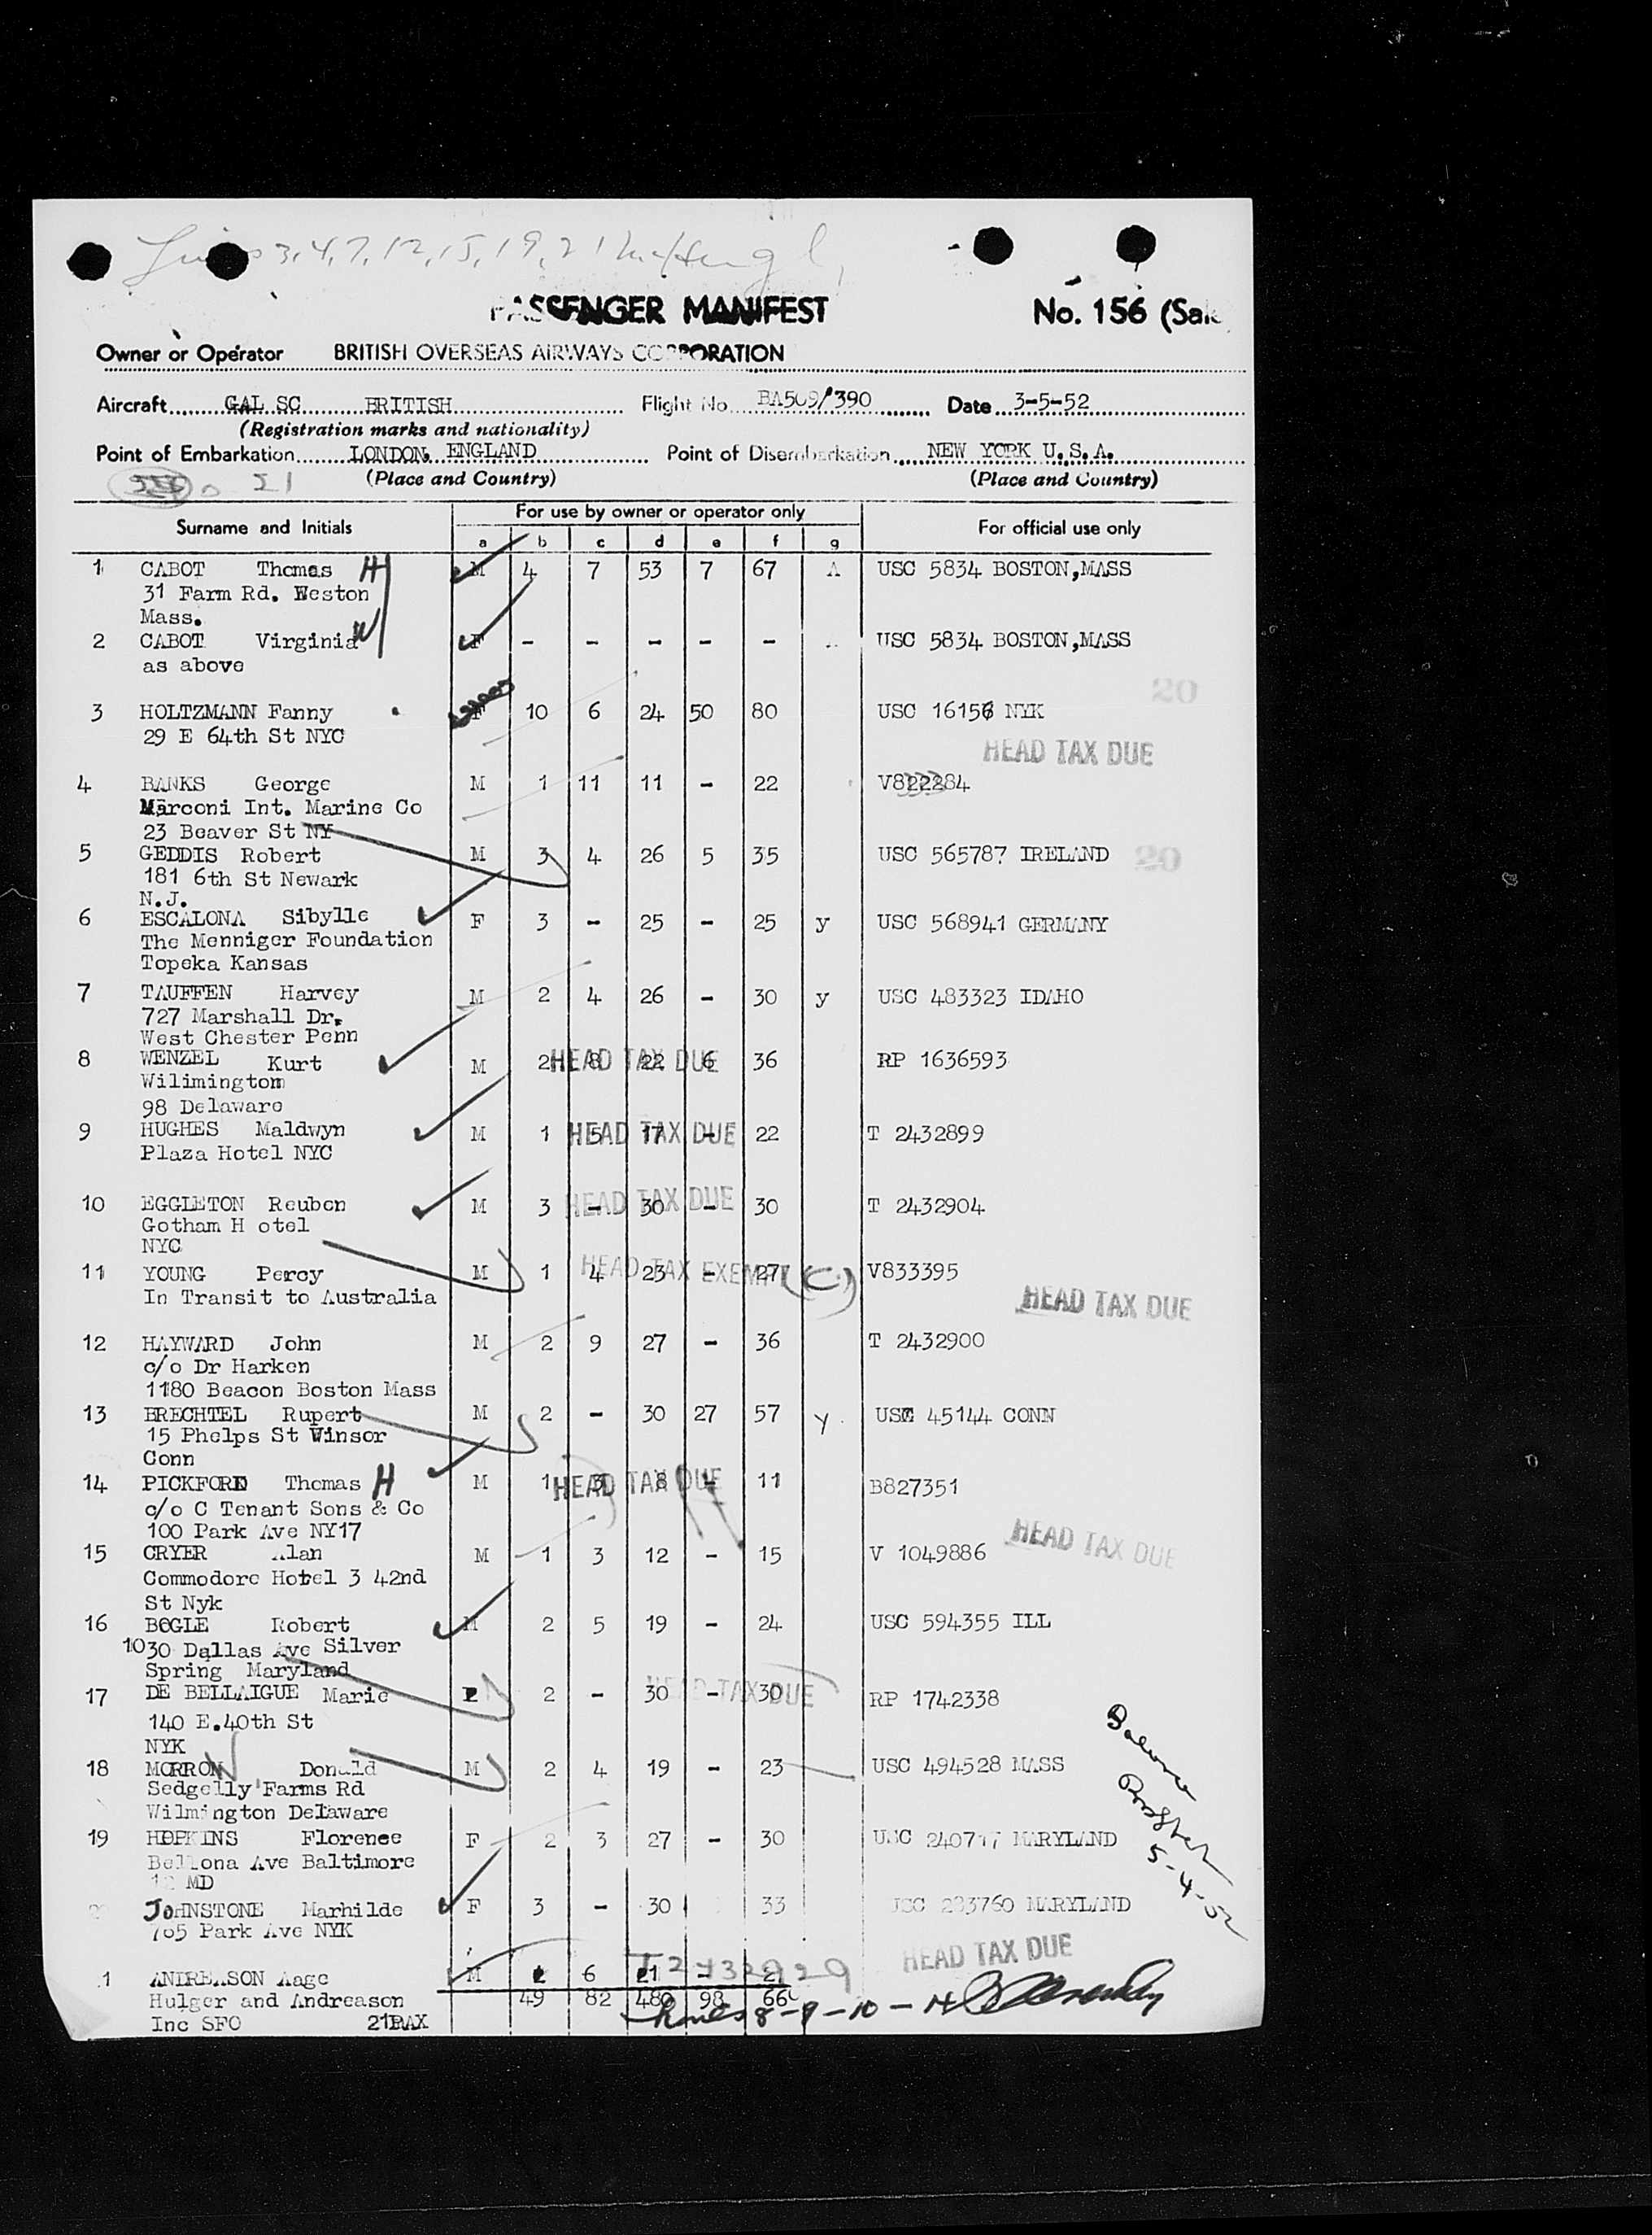 PASSENGER MANIFEST No. 156 (Sal
Owner or Operator BRITISH OVERSEAS AIRWAYS CORPORATION
Aircraft GAL SC BRITISH Flight No. BA509/390 Date 3-5-52
(Registration marks and nationality)
Point of Embarkation LONDON, ENGLAND Point of Disembarkation NEW YORK U.S.A.
(Place and Country) (Place and Country)
21
For use by owner or operator only
Surname and Initials For official use only
a b c d e f g
1 CABOT Thomas H M 4 7 53 7 67 A USC 5834 BOSTON,MASS
31 Farm Rd. Weston
Mass.
2 CABOT Virginia W F - - - - - USC 5834 BOSTON,MASS
as above
20
3 HOLTZMANN Fanny F 10 6 24 50 80 USC 16156 NYK
29 E 64th St NYC
HEAD TAX DUE
4 BANKS George M 1 11 11 - 22 V822284
Marconi Int. Marine Co
23 Beaver St NY
5 GEDDIS Robert M 3 4 26 5 35 USC 565787 IRELAND 20
181 6th St Newark
N.J.
6 ESCALONA Sibylle F 3 - 25 - 25 y USC 568941 GERMANY
The Menniger Foundation
Topeka Kansas
7 TAUFFEN Harvey M 2 4 26 - 30 y USC 483323 IDAHO
727 Marshall Dr.
West Chester Penn
8 WENZEL Kurt M 2 8 22 6 36 RP 1636593
HEAD TAX DUE
Wilimington
98 Delaware
9 HUGHES Maldwyn M 1 5 17 - 22 T 2432899
HEAD TAX DUE
Plaza Hotel NYC
10 EGGLETON Reuben M 3 - 30 - 30 T 2432904
HEAD TAX DUE
Gotham H otel
NYC
11 YOUNG Percy M 1 4 23 - 27 V833395
HEAD TAX EXEMPT (C)
In Transit to Australia
HEAD TAX DUE
12 HAYWARD John M 2 9 27 - 36 T 2432900
c/o Dr Harken
1180 Beacon Boston Mass
13 BRECHTEL Rupert M 2 - 30 27 57 y USC 45144 CONN
15 Phelps St Winsor
Conn
14 PICKFORD Thomas H M 1 3 8 - 11 B827351
HEAD TAX DUE
c/o C Tenant Sons & Co
100 Park Ave NY17
15 CRYER Alan M 1 3 12 - 15 V 1049886
HEAD TAX DUE
Commodore Hotel 3 42nd
St Nyk
16 BOGLE Robert M 2 5 19 - 24 USC 594355 ILL
1030 Dallas Ave Silver
Spring Maryland
17 DE BELLAIGUE Marie F 2 - 30 - 30 RP 1742338
HEAD TAX DUE
140 E.40th St
NYK
18 MORROW Donald M 2 4 19 - 23 USC 494528 MASS
Sedgelly Farms Rd
Wilmington Delaware
19 HOPKINS Florence F 2 3 27 - 30 USC 240717 MARYLAND
Bellona Ave Baltimore
12 MD
5-4-52
JOHNSTONE Marhilde F 3 - 30 33 USC 233760 MARYLAND
765 Park Ave NYK
HEAD TAX DUE
T2432929
1 ANDREASON Aage M 6 21
Hulger and Andreason 49 82 480 98 660
Inc SFO 21PAX
Lines 8-9-10-14